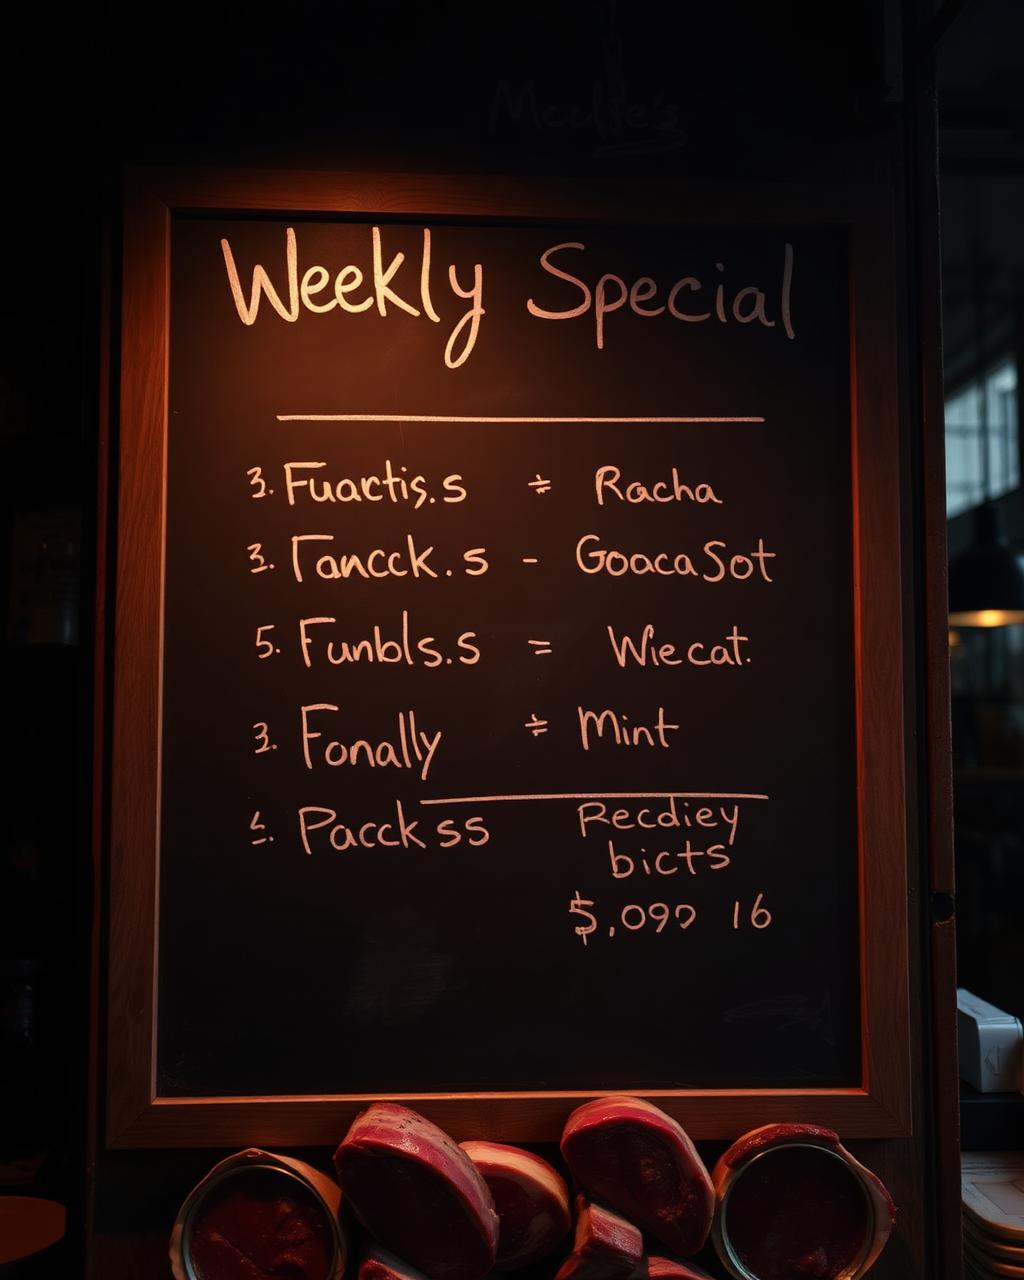 Weekly Special
3. Fuactis.s ÷ Racha
3. Tancck.s - GoacaSot
5. Funbls.s = Wiecat.
3. Fonally ÷ Mint
Pacckss Recdiey
bicts
$,09 16